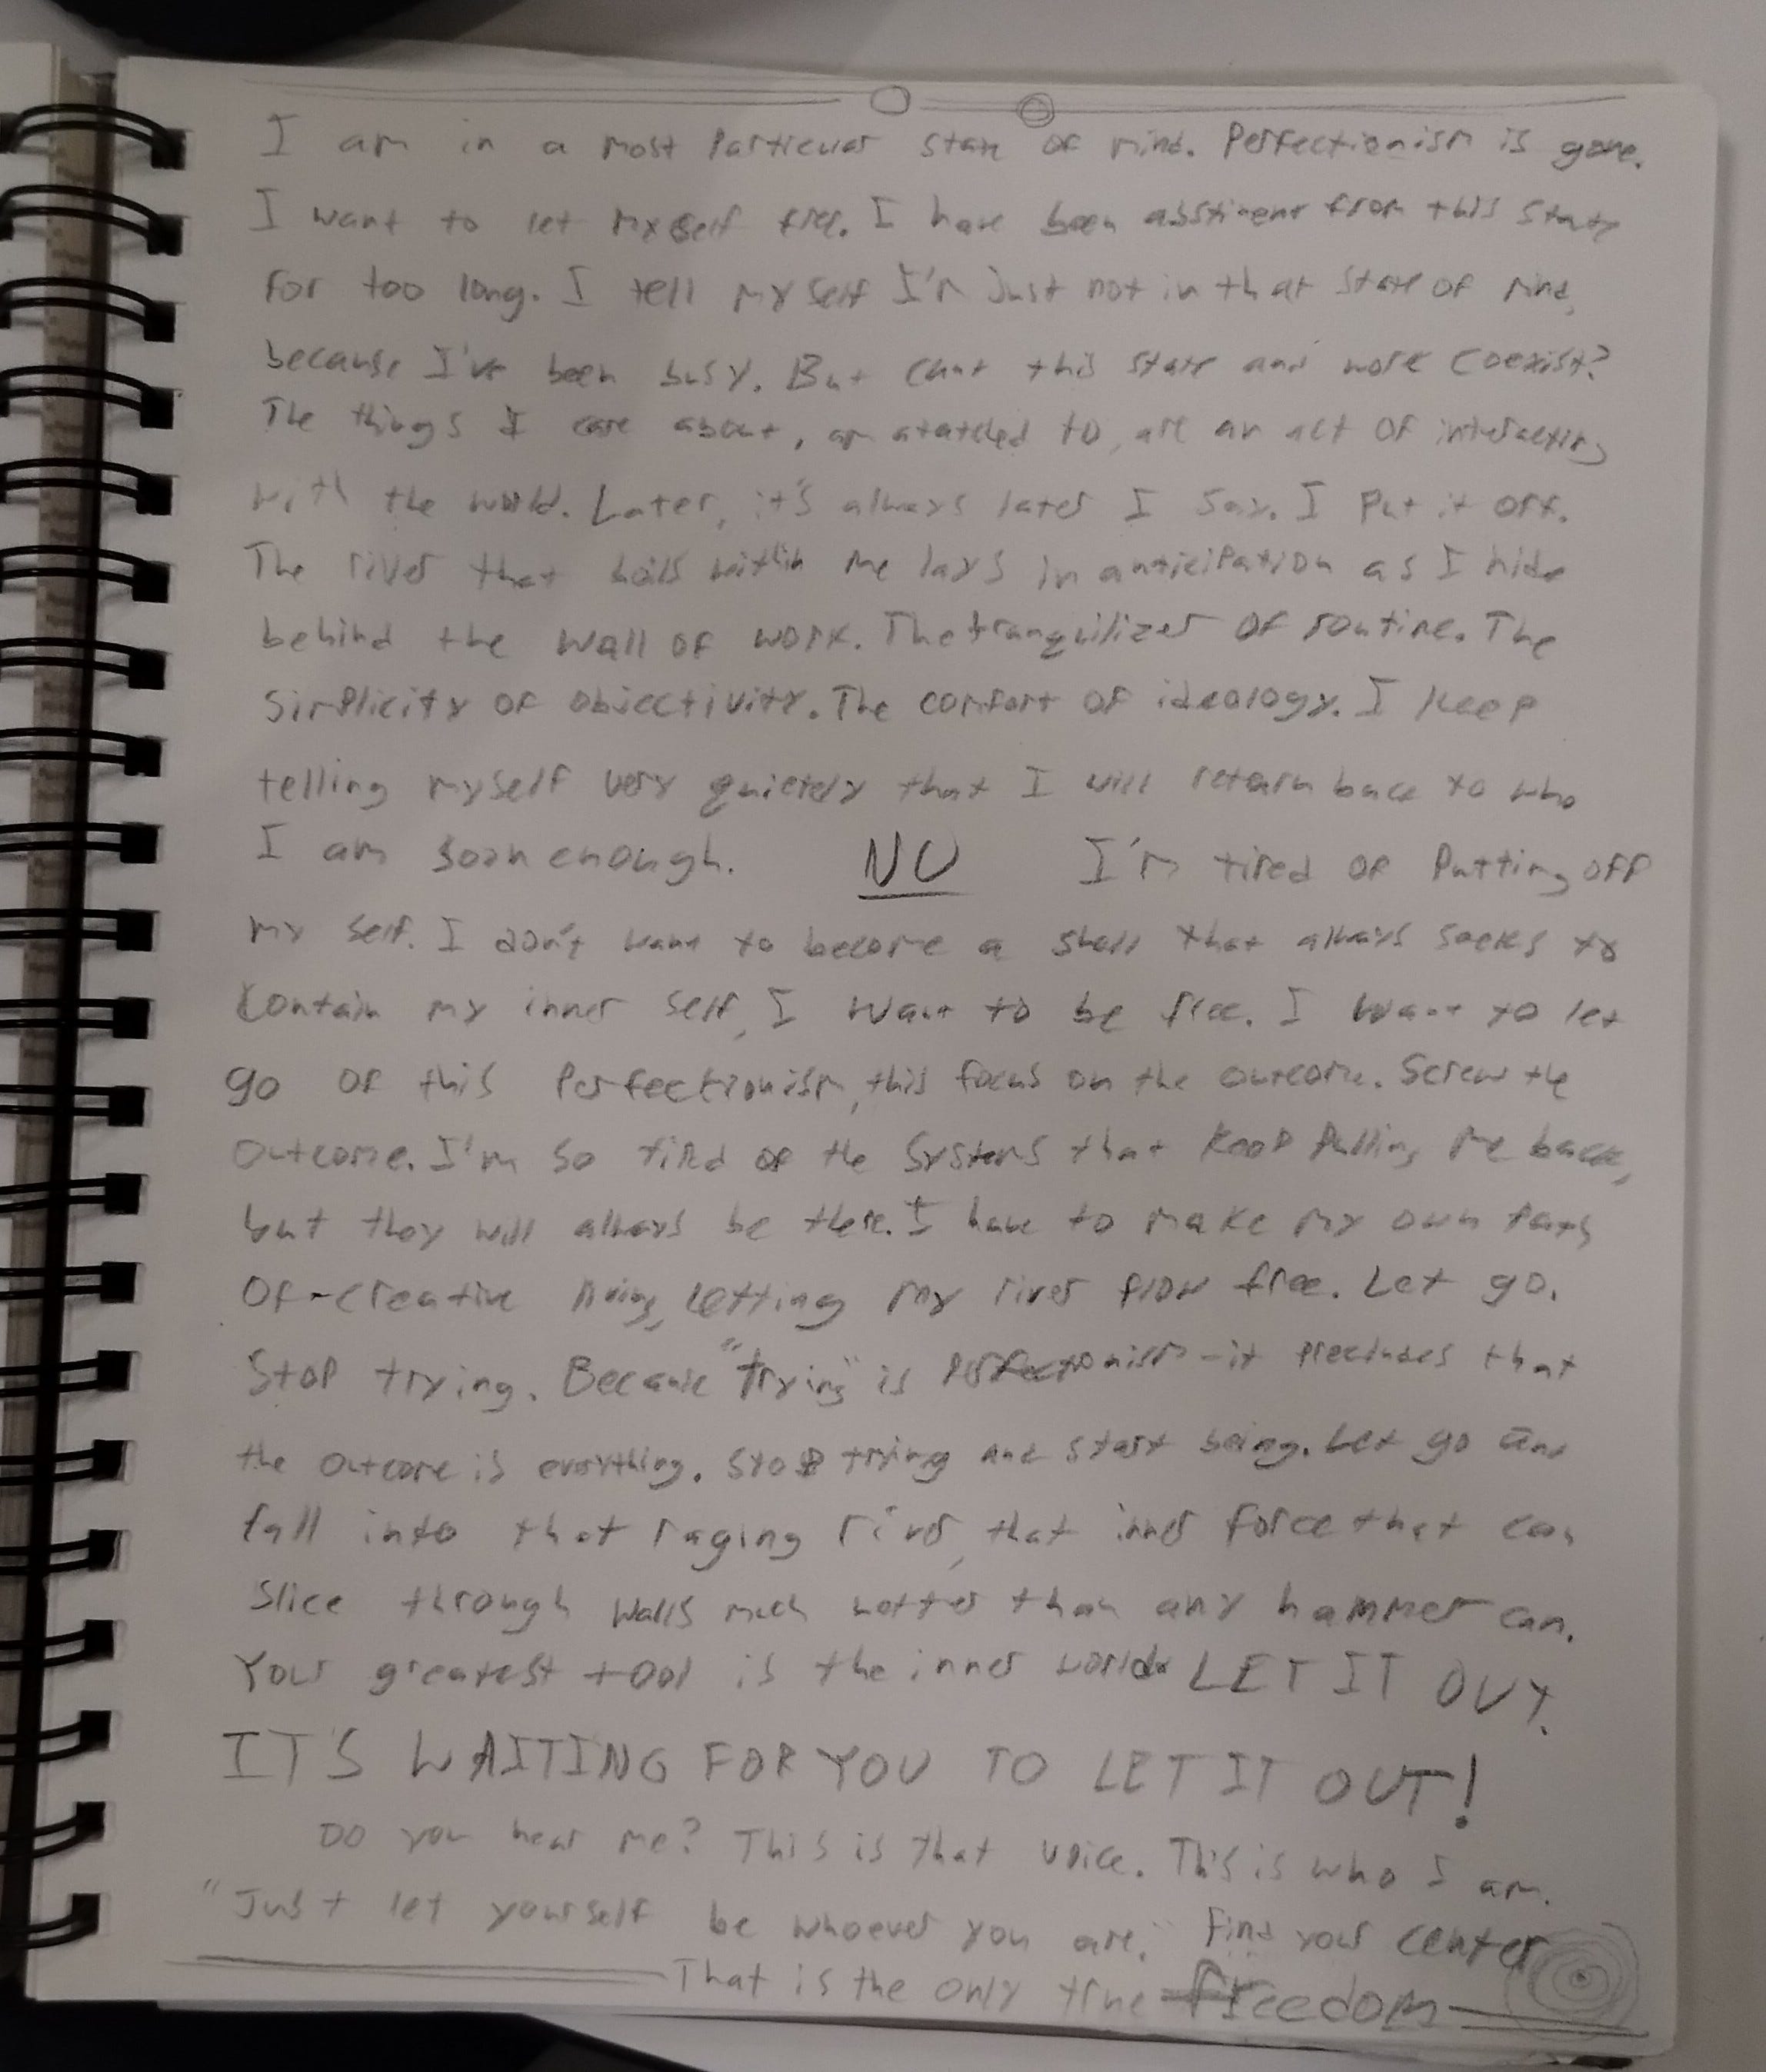 I am in a most particular state of mind. Perfectionism is gone.
I want to let myself free. I have been abstinent from this state
for too long. I tell myself I'm just not in that state of mind,
because I've been busy. But cant this state and work coexist?
The things I care about, am atatched to, are an act of interacting
with the world. Later, it's always later I say. I put it off.
The river that boils within me lays in anticipation as I hide
behind the wall of work. The tranquilizer of routine. The
simplicity of objectivity. The comfort of ideology. I keep
telling myself very quietely that I will return back to who
I am soon enough. NO I'm tired of putting off
my self. I don't want to become a shell that always seeks to
contain my inner self, I want to be free. I want to let
go of this perfectionism, this focus on the outcome. Screw the
outcome. I'm so tired of the systems that keep pulling me back,
but they will always be there. I have to make my own path
of creative living, letting my river flow free. Let go.
Stop trying. Because "trying" is perfectionism - it precludes that
the outcome is everything. Stop trying and start being. Let go and
fall into that raging river, that inner force that can
slice through walls much better than any hammer can.
Your greatest tool is the inner world. LET IT OUT.
IT'S WAITING FOR YOU TO LET IT OUT!
Do you hear me? This is that voice. This is who I am.
"Just let yourself be whoever you are." Find your center
That is the only true freedom